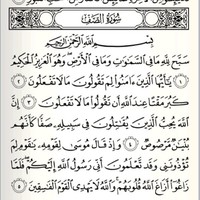 سُورَةُ الصَّفِّ
بِسْمِ اللَّهِ الرَّحْمَٰنِ الرَّحِيمِ
سَبَّحَ لِلَّهِ مَا فِي السَّمَاوَاتِ وَمَا فِي الْأَرْضِ وَهُوَ الْعَزِيزُ الْحَكِيمُ
١ يَا أَيُّهَا الَّذِينَ آمَنُوا لِمَ تَقُولُونَ مَا لَا تَفْعَلُونَ ٢
كَبُرَ مَقْتًا عِندَ اللَّهِ أَن تَقُولُوا مَا لَا تَفْعَلُونَ ٣ إِنَّ
اللَّهَ يُحِبُّ الَّذِينَ يُقَاتِلُونَ فِي سَبِيلِهِ صَفًّا كَأَنَّهُم
بُنْيَانٌ مَّرْصُوصٌ ٤ وَإِذْ قَالَ مُوسَىٰ لِقَوْمِهِ يَا قَوْمِ لِمَ
تُؤْذُونَنِي وَقَد تَّعْلَمُونَ أَنِّي رَسُولُ اللَّهِ إِلَيْكُمْ فَلَمَّا
زَاغُوا أَزَاغَ اللَّهُ قُلُوبَهُمْ وَاللَّهُ لَا يَهْدِي الْقَوْمَ الْفَاسِقِينَ ٥